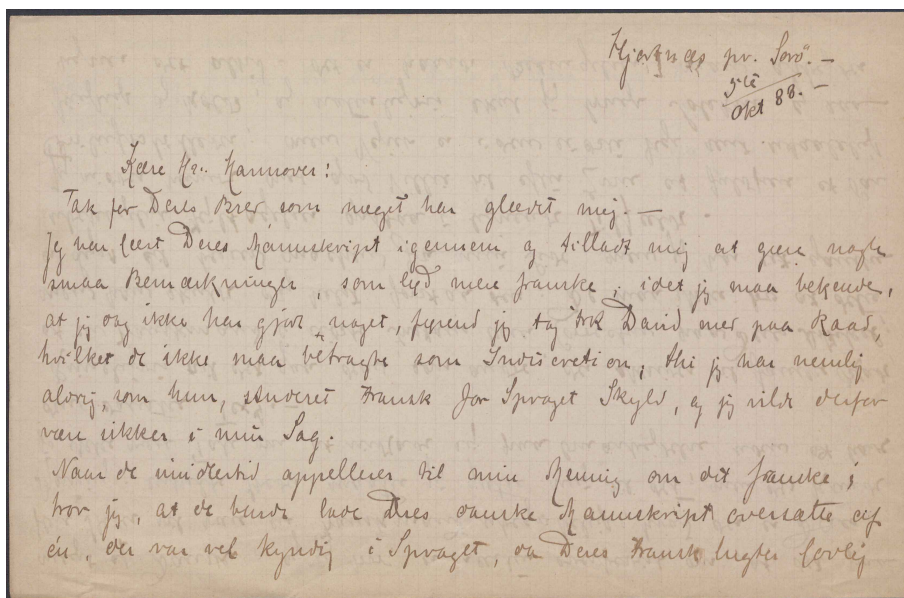 Hjortnæs pr. Sorö. —
5te Okt 88. —
Kære Hr. Hannover!
Tak for Deres Brev som meget har glædet mig. —
Jeg har læst Deres Manuskript igennem og tilladt mig at gøre nogle
smaa Bemærkninger, som lyd mere franske; idet jeg maa bekjende,
at jeg dog ikke har gjort noget, førend jeg tog Frk David med paa Raad,
hvilket de ikke maa betragte som Indiscretion; thi jeg har nemlig
aldrig, som hun, studeret Fransk for Sprogets Skyld, og jeg vilde derfor
være sikker i min Sag.
Naar de imidlertid appellerer til min Mening om det franske;
tror jeg, at de burde lade Deres danske Manuskript oversætte af
én, der var vel kyndig i Sproget, da Deres Fransk lugter lovlig